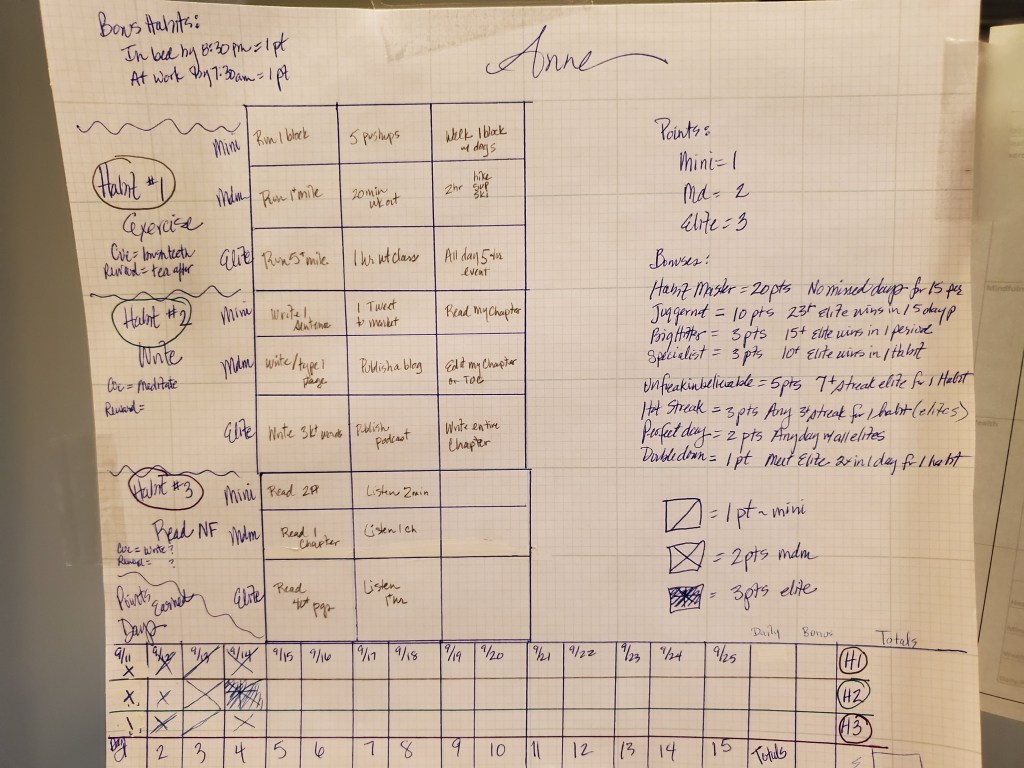 Bonus Habits:
In bed by 8:30pm = 1pt
At work by 7:30am = 1pt
Anne
Habit #1
Exercise
Cue = brush teeth
Reward = tea after
Mini
Run 1 block
5 pushups
Walk 1 block w dogs
Mdm
Run 1+ mile
20 min wkout
2hr hike sup ski
Elite
Run 5+ mile
1 hr wt class
All day 5+ hr event
Habit #2
Write
Cue = Meditate
Reward =
Mini
Write 1 sentence
1 Tweet to market
Read my chapter
Mdm
Write/type 1 page
Publish a blog
Edit my chapter or TOC
Elite
Write 3k+ words
Publish podcast
Write entire Chapter
Habit #3
Read NF
Cue = Write?
Reward = ?
Mini
Read 2
Listen 2min
Mdm
Read 1 Chapter
Listen 1 ch
Elite
Read 40+ pgs
Listen 1 hr
Points:
Mini = 1
Md = 2
Elite = 3
Bonuses:
Habit Master = 20pts No missed days for 15 per
Juggernut = 10 pts 23+ Elite wins in 15 day p
Big Hitter = 3 pts 15+ Elite wins in 1 period
Specialist = 3 pts 10+ Elite wins in 1 Habit
Unfreakinbelievable = 5pts 7+ streak elite for 1 Habit
Hot Streak = 3 pts Any 3+ streak for 1 habit (elites)
Perfect day = 2 pts Any day w/ all elites
Double down = 1 pt Meet Elite 2x in 1 day for 1 habit
= 1 pt - mini
= 2pts mdm
= 3pts elite
Points Earned
Days
Daily Bonus Totals
9/11 9/12 9/13 9/14 9/15 9/16 9/17 9/18 9/19 9/20 9/21 9/22 9/23 9/24 9/25 H1
H2
H3
Day 2 3 4 5 6 7 8 9 10 11 12 13 14 15 Totals